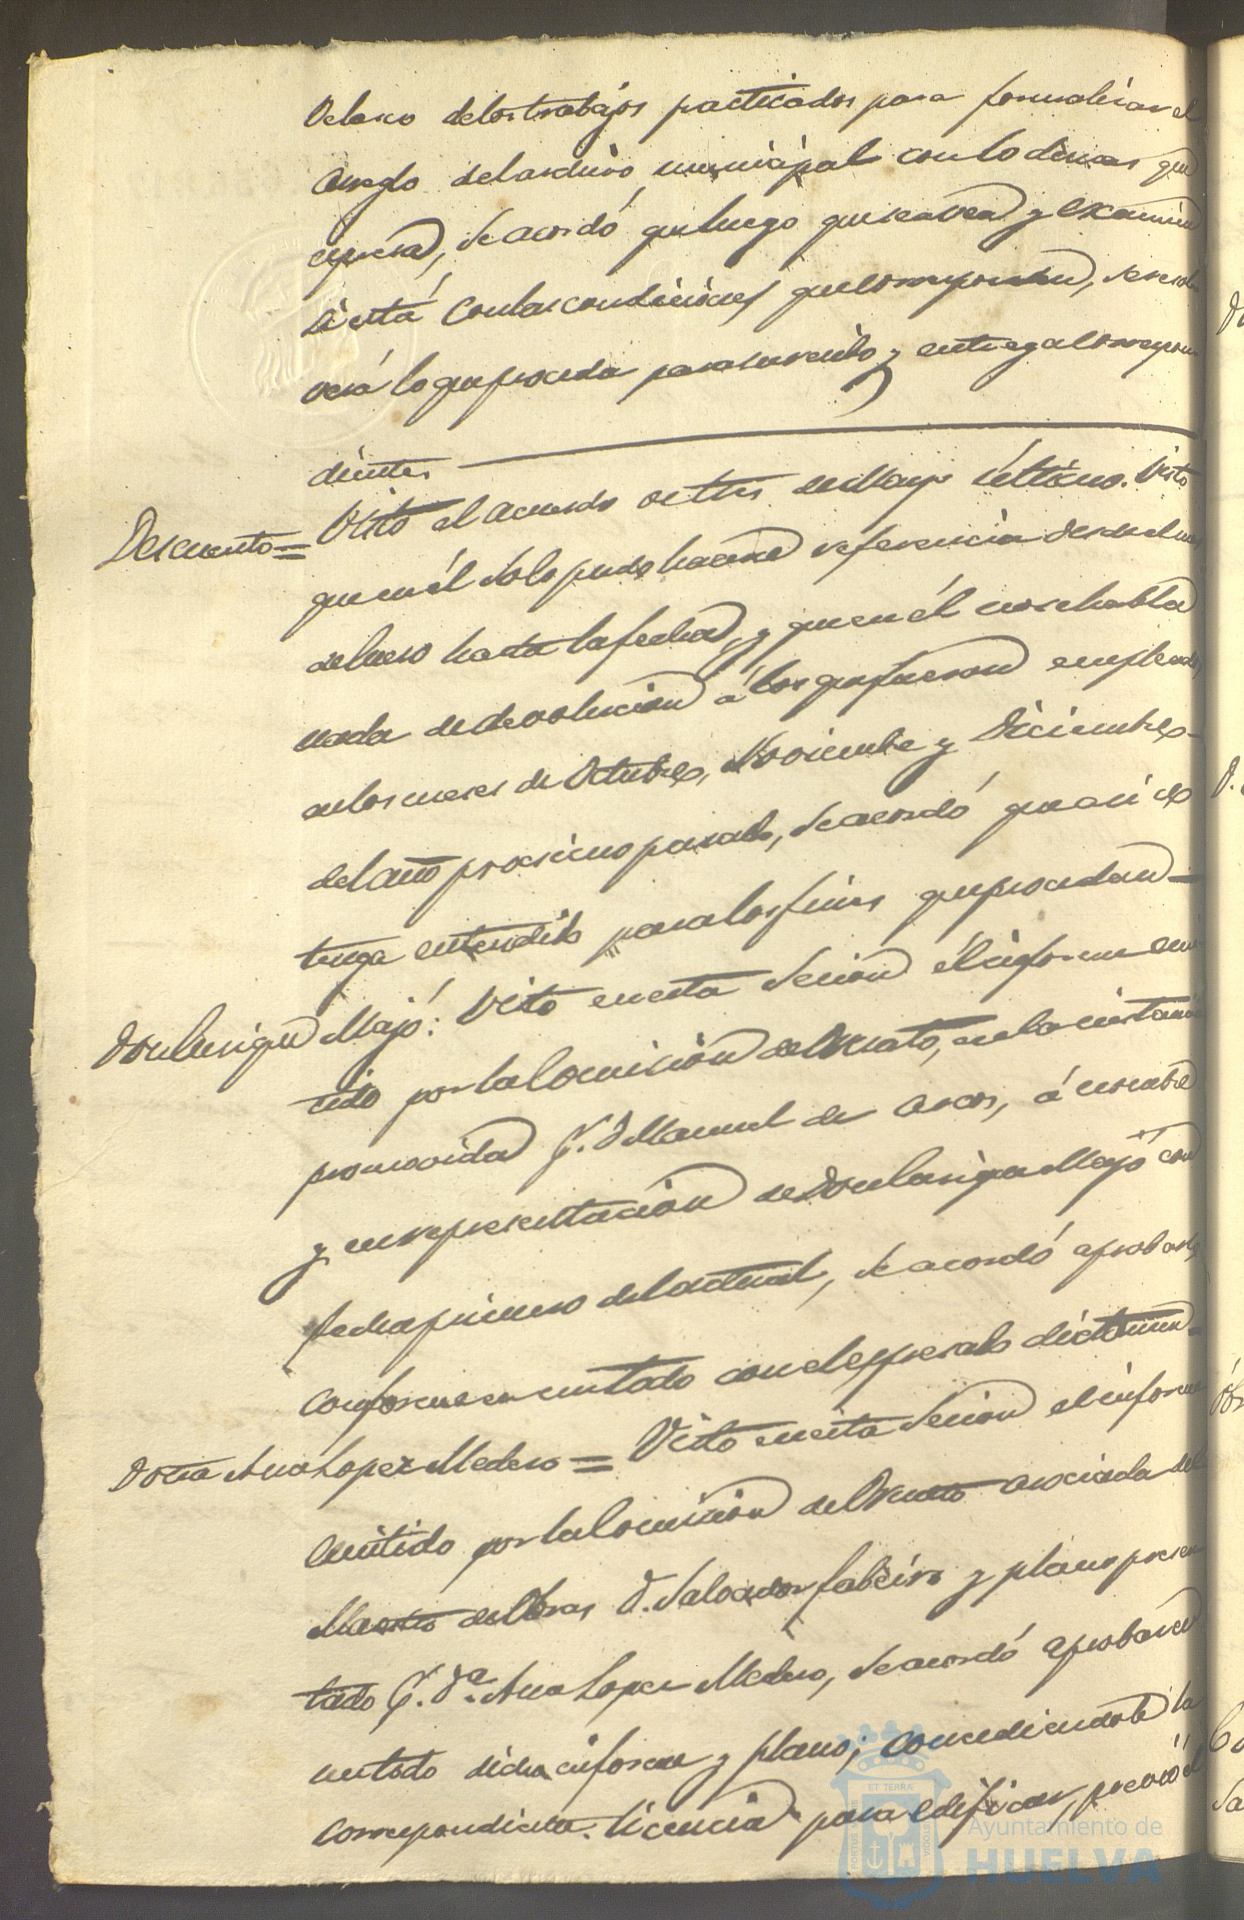 Velasco delos trabajos practicados para formalizar el
arreglo del archivo municipal con lo demas que
espresa, se acordó que luego que se vea y examine
si está con las condiciones que corresponden, se resol
verá lo que proceda para su recibo y entrega correspon
dientes
Descuento = Visto el acuerdo de tres de Mayo último. Visto
que en él solo pudo hacerse referencia desde el mes
de Enero hasta la fecha, y que en él no se habla
nada de devolucion á los que fueron empleados
en los meses de Octubre, Noviembre y Diciembre
del año procsimo pasado, se acordó que asi se
tenga entendido para los fines que procedan =
Don Enrique Majó: Visto en esta sesion el informe emi
tido por la Comision de Ornato, en la instancia
promovida p.r D. Manuel de Arcos, á nombre
y en representacion de Don Enrique Majó con
fecha primero del actual, se acordó aprobarlo,
conforme en un todo con el espresado dictamen =
Doña Ana Lopez Medero = Visto en esta sesion el informe
emitido por la Comision del Ornato asociada del
Maestro de Obras D. Salvador y plano presen
tado p.r D.ª Ana Lopez Medero, se acordó aprobar en
un todo dicho informe y plano; concediendole la
correspondiente licencia para edificar, previo el
ET TERRÆ
Ayuntamiento de
HUELVA